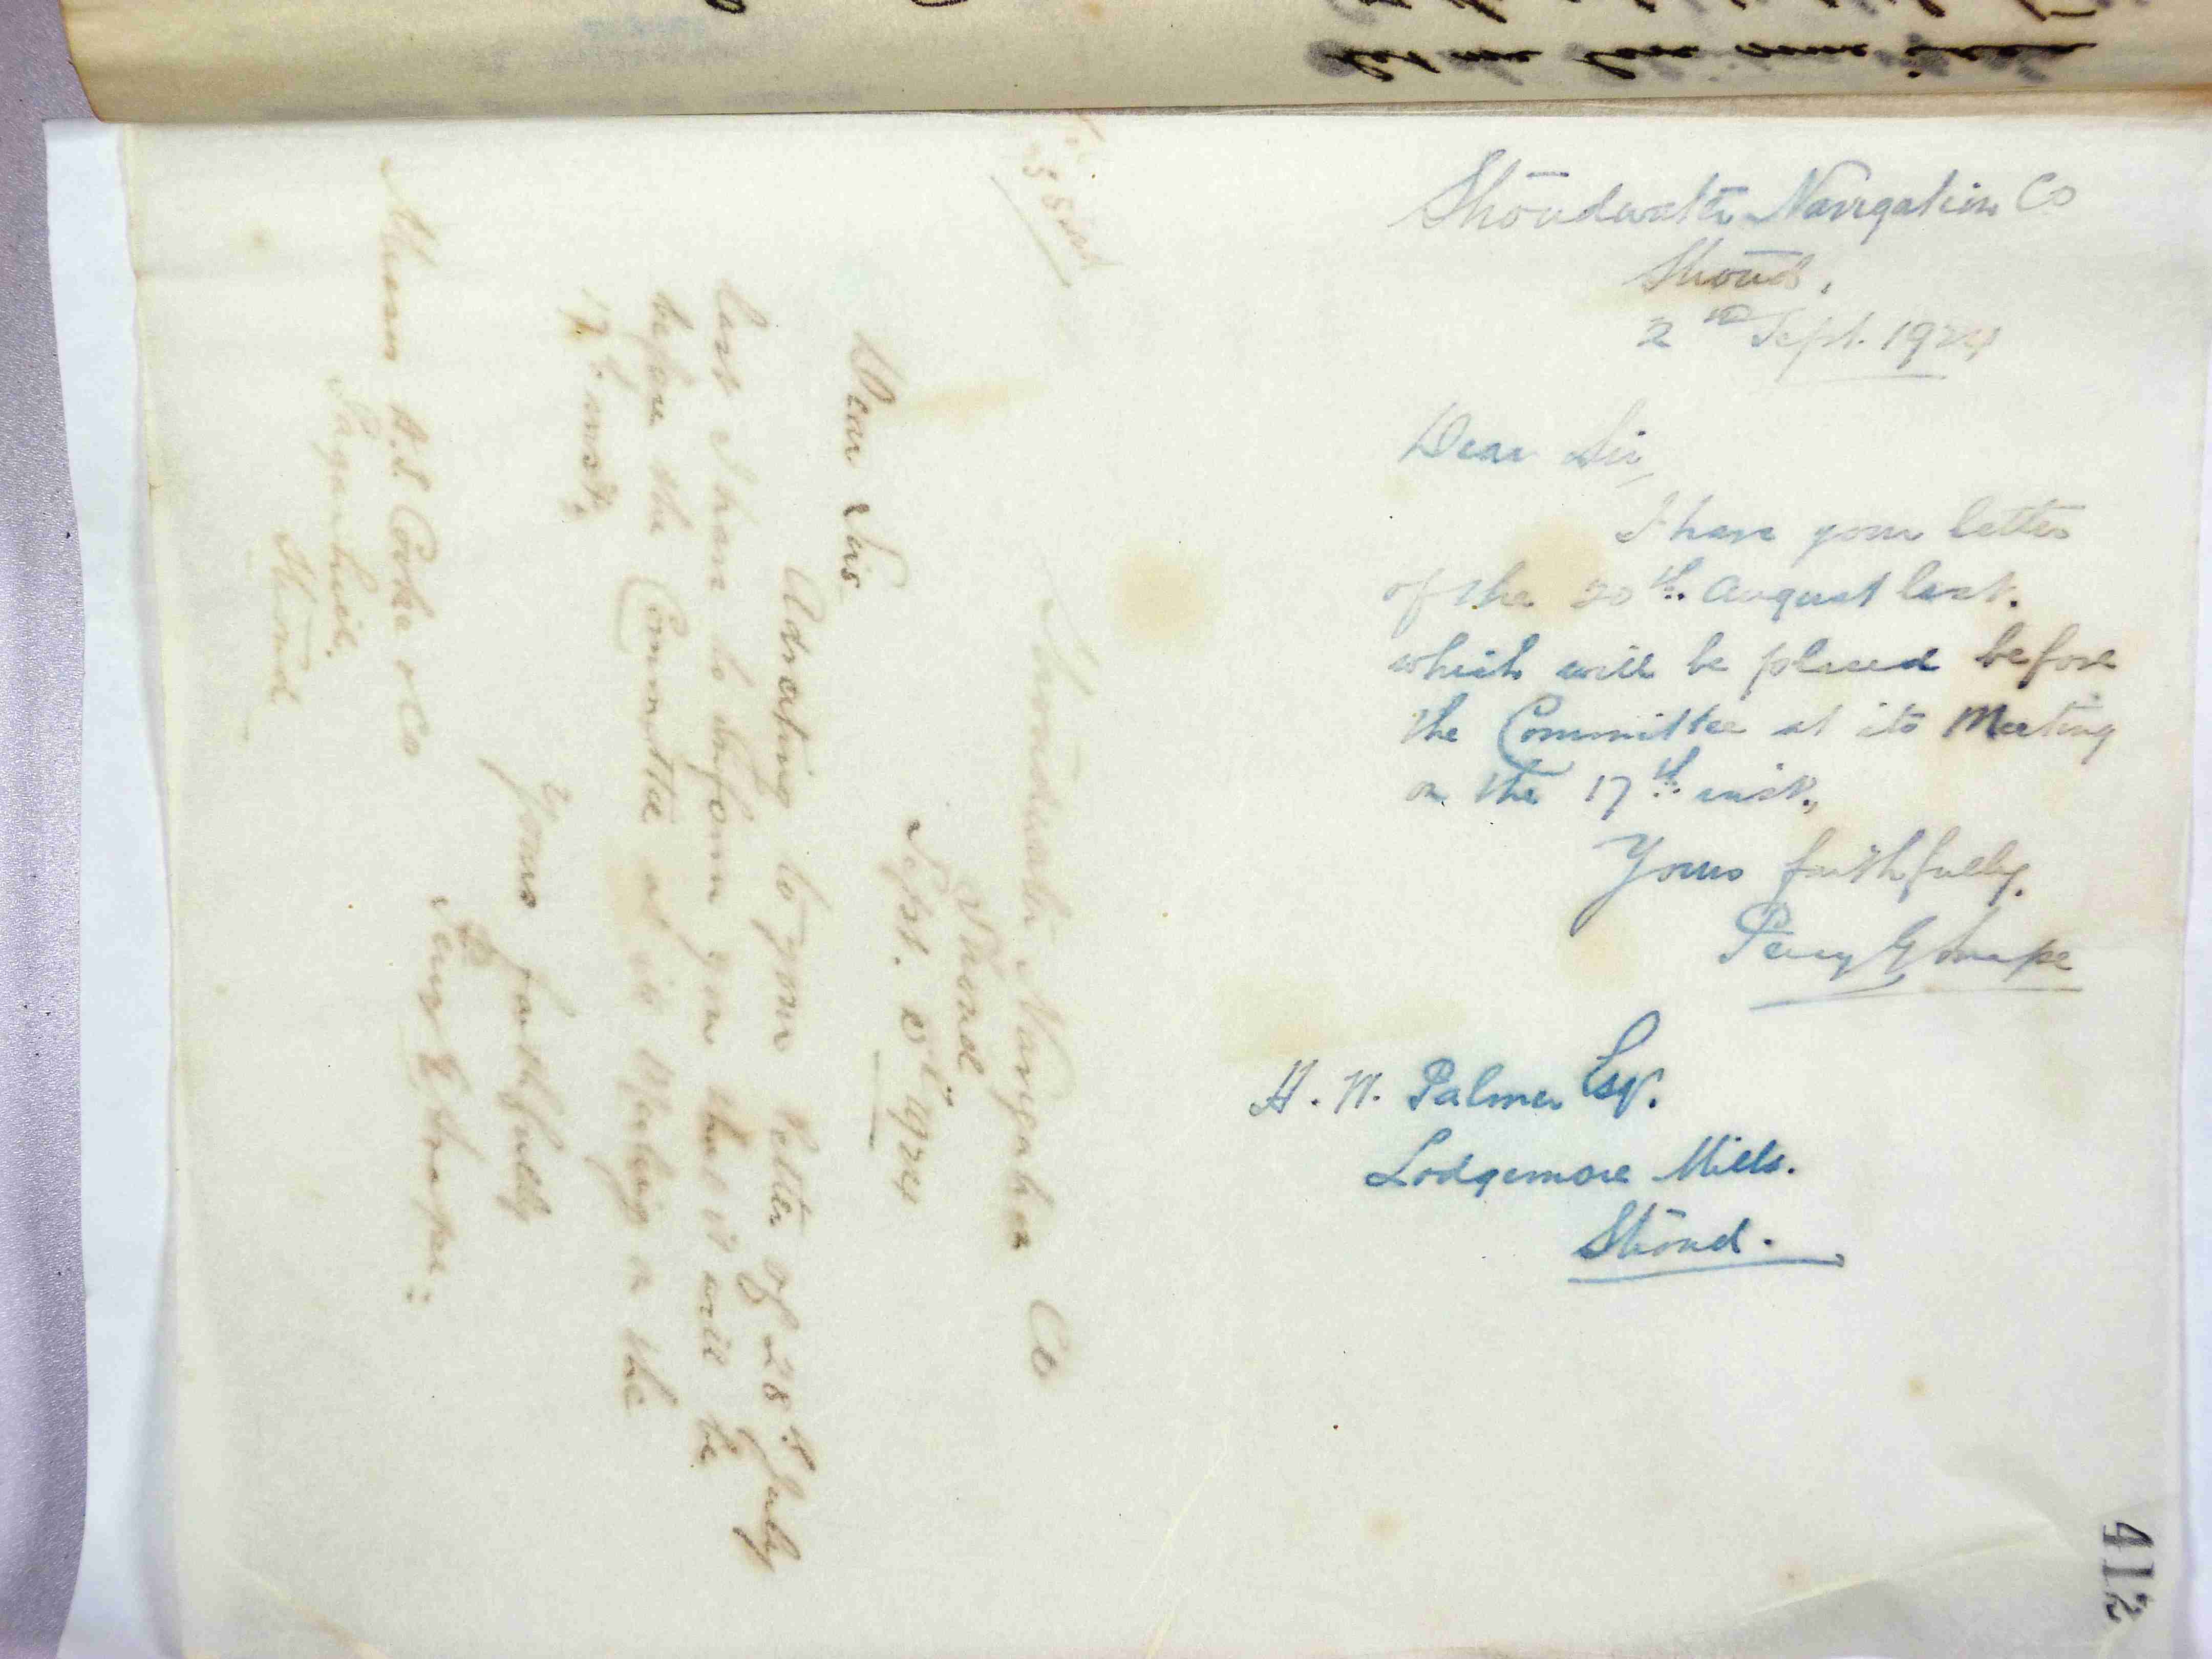 Stroudwater Navigation Co
Stroud.
2nd Sept. 1924
Dear Sir,
I have your letter
of the 20th. August last.
which will be placed before
the Committee at its Meeting
on the 17th. inst.,
Yours faithfully.
Percy G Snape
H. W. Palmer Esq.
Lodgemore Mills.
Stroud.
412
Stroudwater Navigation Co
Stroud
Sept. 1924
Dear Sirs
Adverting to your letter of 28th July
last I have to inform you that it will be
before the Committee at its Meeting on the
17th. inst.
Yours faithfully
Percy G Snape
Messrs A.S. Cooke & Co
Paganhill.
Stroud
let me have some